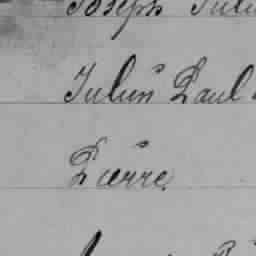 Joseph Juli
Julien Paul
Pierre